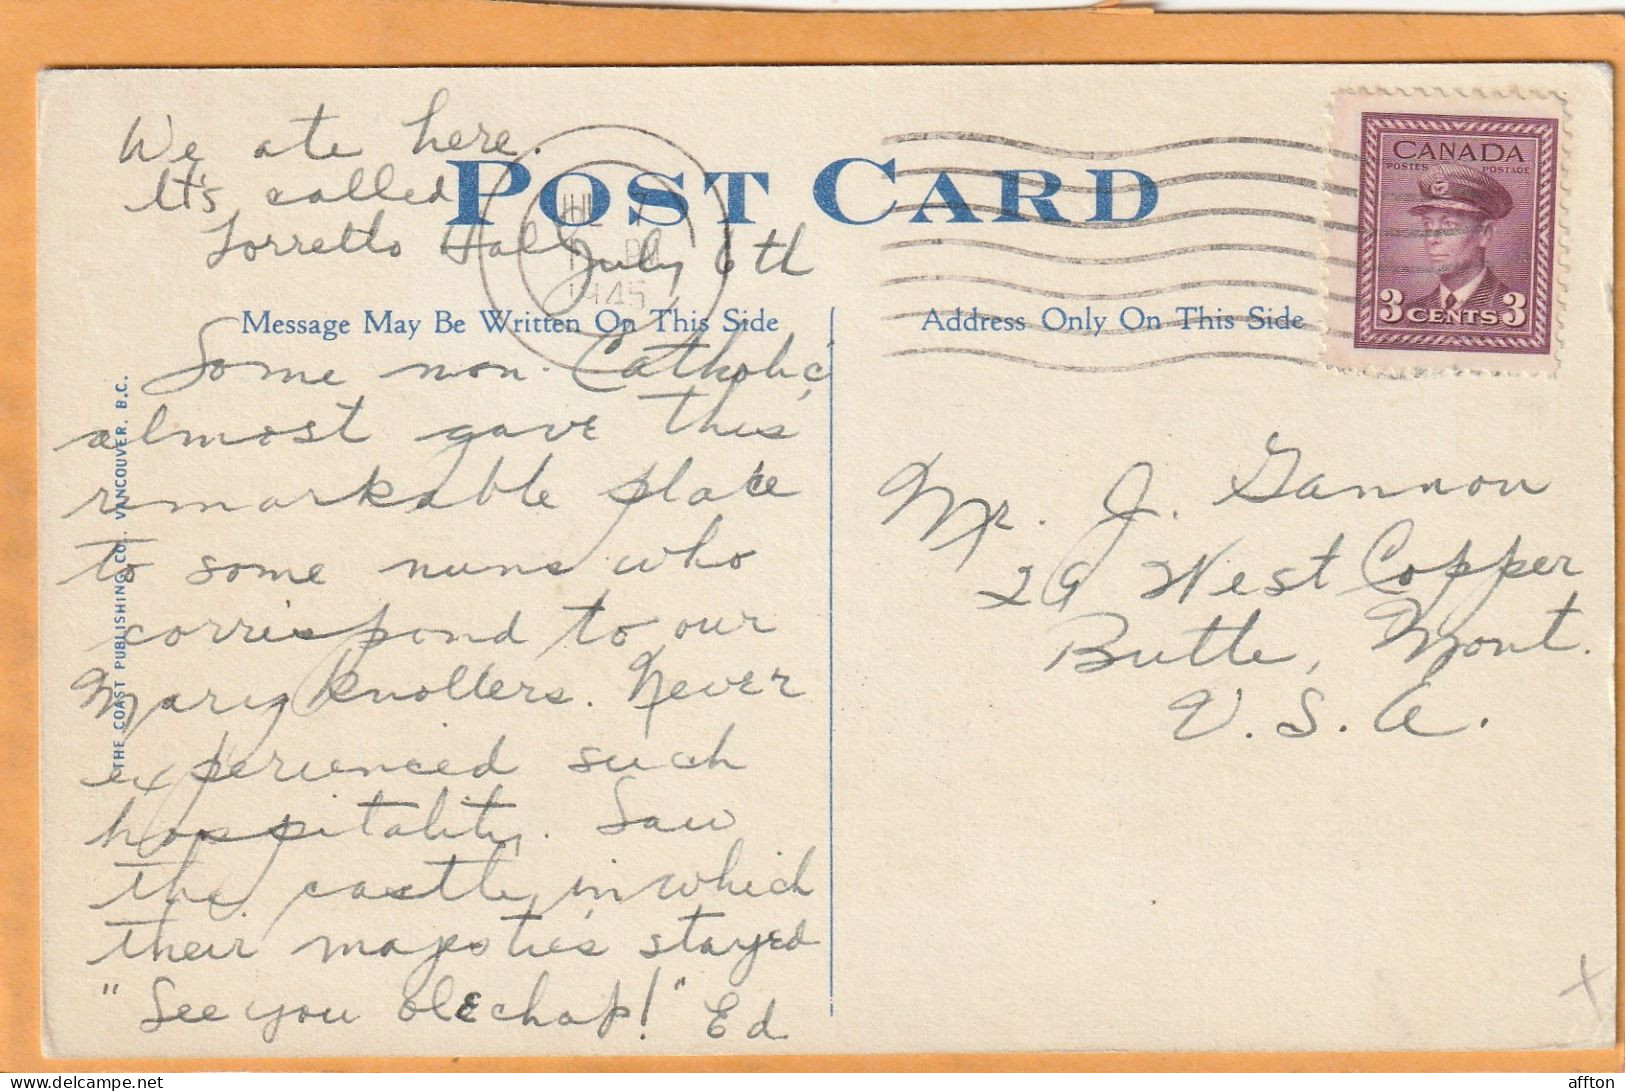 We ate here.
It's called
Lorretto Hall.
POST CARD
July 6th
1945
CANADA
POSTES POSTAGE
3 CENTS 3
Message May Be Written On This Side
Address Only On This Side
Some non-Catholic
almost gave this
remarkable place
to some nuns who
correspond to our
Mary knollers. Never
experienced such
hospitality. Saw
the castle in which
their majesties stayed
"See you ole chap!" Ed
THE COAST PUBLISHING CO., VANCOUVER, B.C.
Mr. J. Gannon
29 West Copper
Butte, Mont.
U.S.A.
x
affton